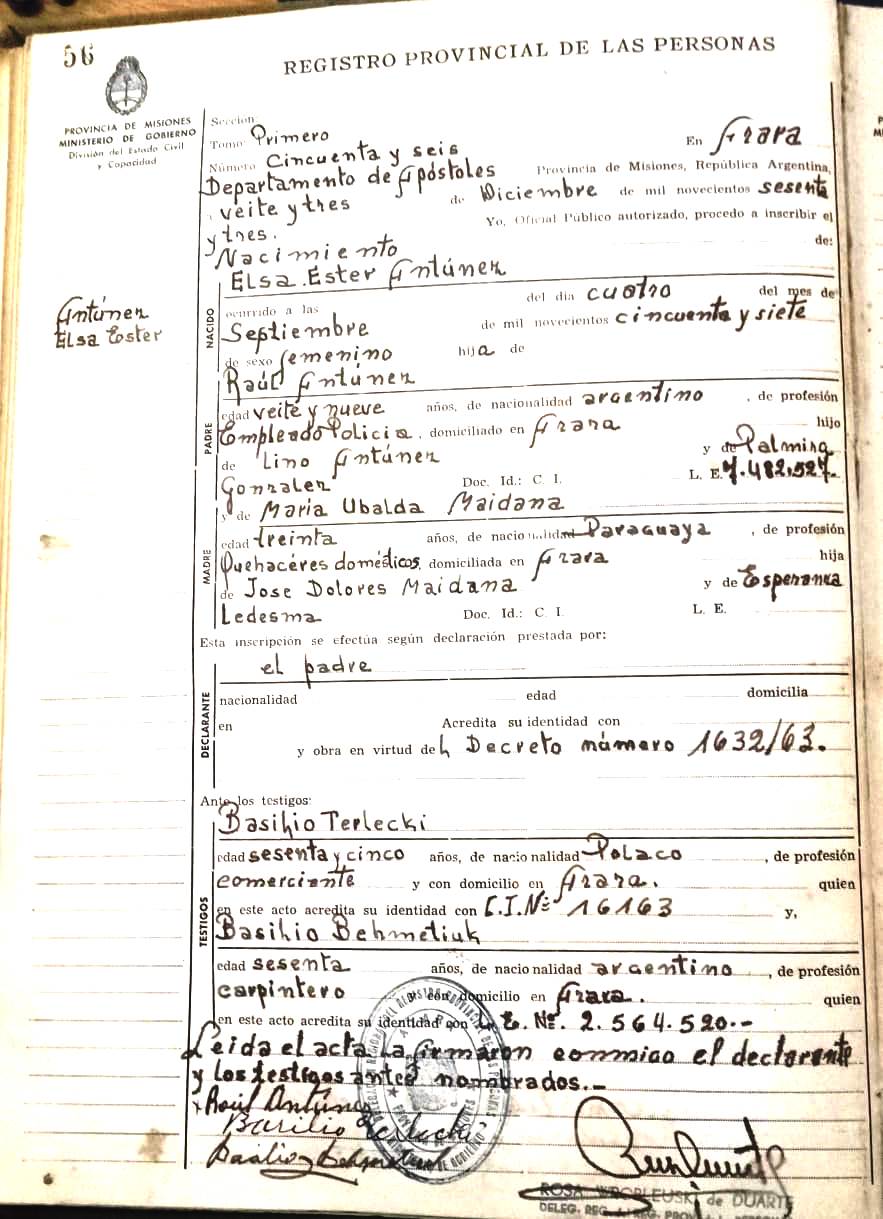 56
REGISTRO PROVINCIAL DE LAS PERSONAS
PROVINCIA DE MISIONES
MINISTERIO DE GOBIERNO
División del Estado Civil
y Capacidad
Sección:
Tomo Primero En Azara
Número Cincuenta y seis
Departamento de Apóstoles Provincia de Misiones, República Argentina,
a veite y tres de Diciembre de mil novecientos sesenta
y tres. Yo, Oficial Público autorizado, procedo a inscribir el
Nacimiento de:
Antúnez
Elsa Ester
NACIDO
Elsa Ester Antúnez
ocurrido a las del día cuatro del mes de
Septiembre de mil novecientos cincuenta y siete
de sexo femenino hija de
Raúl Antúnez
PADRE
edad veite y nueve años, de nacionalidad argentino, de profesión
Empleado Policia, domiciliado en Azara hijo
de Lino Antúnez y de Palmira
Gonzalez Doc. Id.: C. I. L. E. 7.482.527.
y de María Ubalda Maidana
MADRE
edad treinta años, de nacionalidad Paraguaya, de profesión
Quehacéres domésticos, domiciliada en Azara hija
de Jose Dolores Maidana y de Esperanza
Ledesma Doc. Id.: C. I. L. E.
Esta inscripción se efectúa según declaración prestada por:
el padre
DECLARANTE
nacionalidad edad domicilia
en Acredita su identidad con
y obra en virtud del Decreto número 1632/63.
Ante los testigos:
TESTIGOS
Basilio Terlecki
edad sesenta y cinco años, de nacionalidad Polaco, de profesión
comerciante y con domicilio en Azara. quien
en este acto acredita su identidad con C.I. Nº 16163 y,
Basilio Behmetiuk
edad sesenta años, de nacionalidad argentino, de profesión
carpintero y con domicilio en Azara. quien
en este acto acredita su identidad con L. E. Nº. 2.564.520.-
Leida el acta la firmaron conmigo el declarante
y los testigos antes nombrados.-
Raúl Antúnez
Basilio Terlecki
Basilio Behmetiuk
ROSA WROPLEUSKI de DUARTE
DELEG. REG.